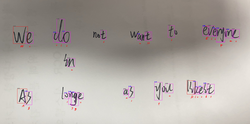 We do not want to everyone
in
As long as you